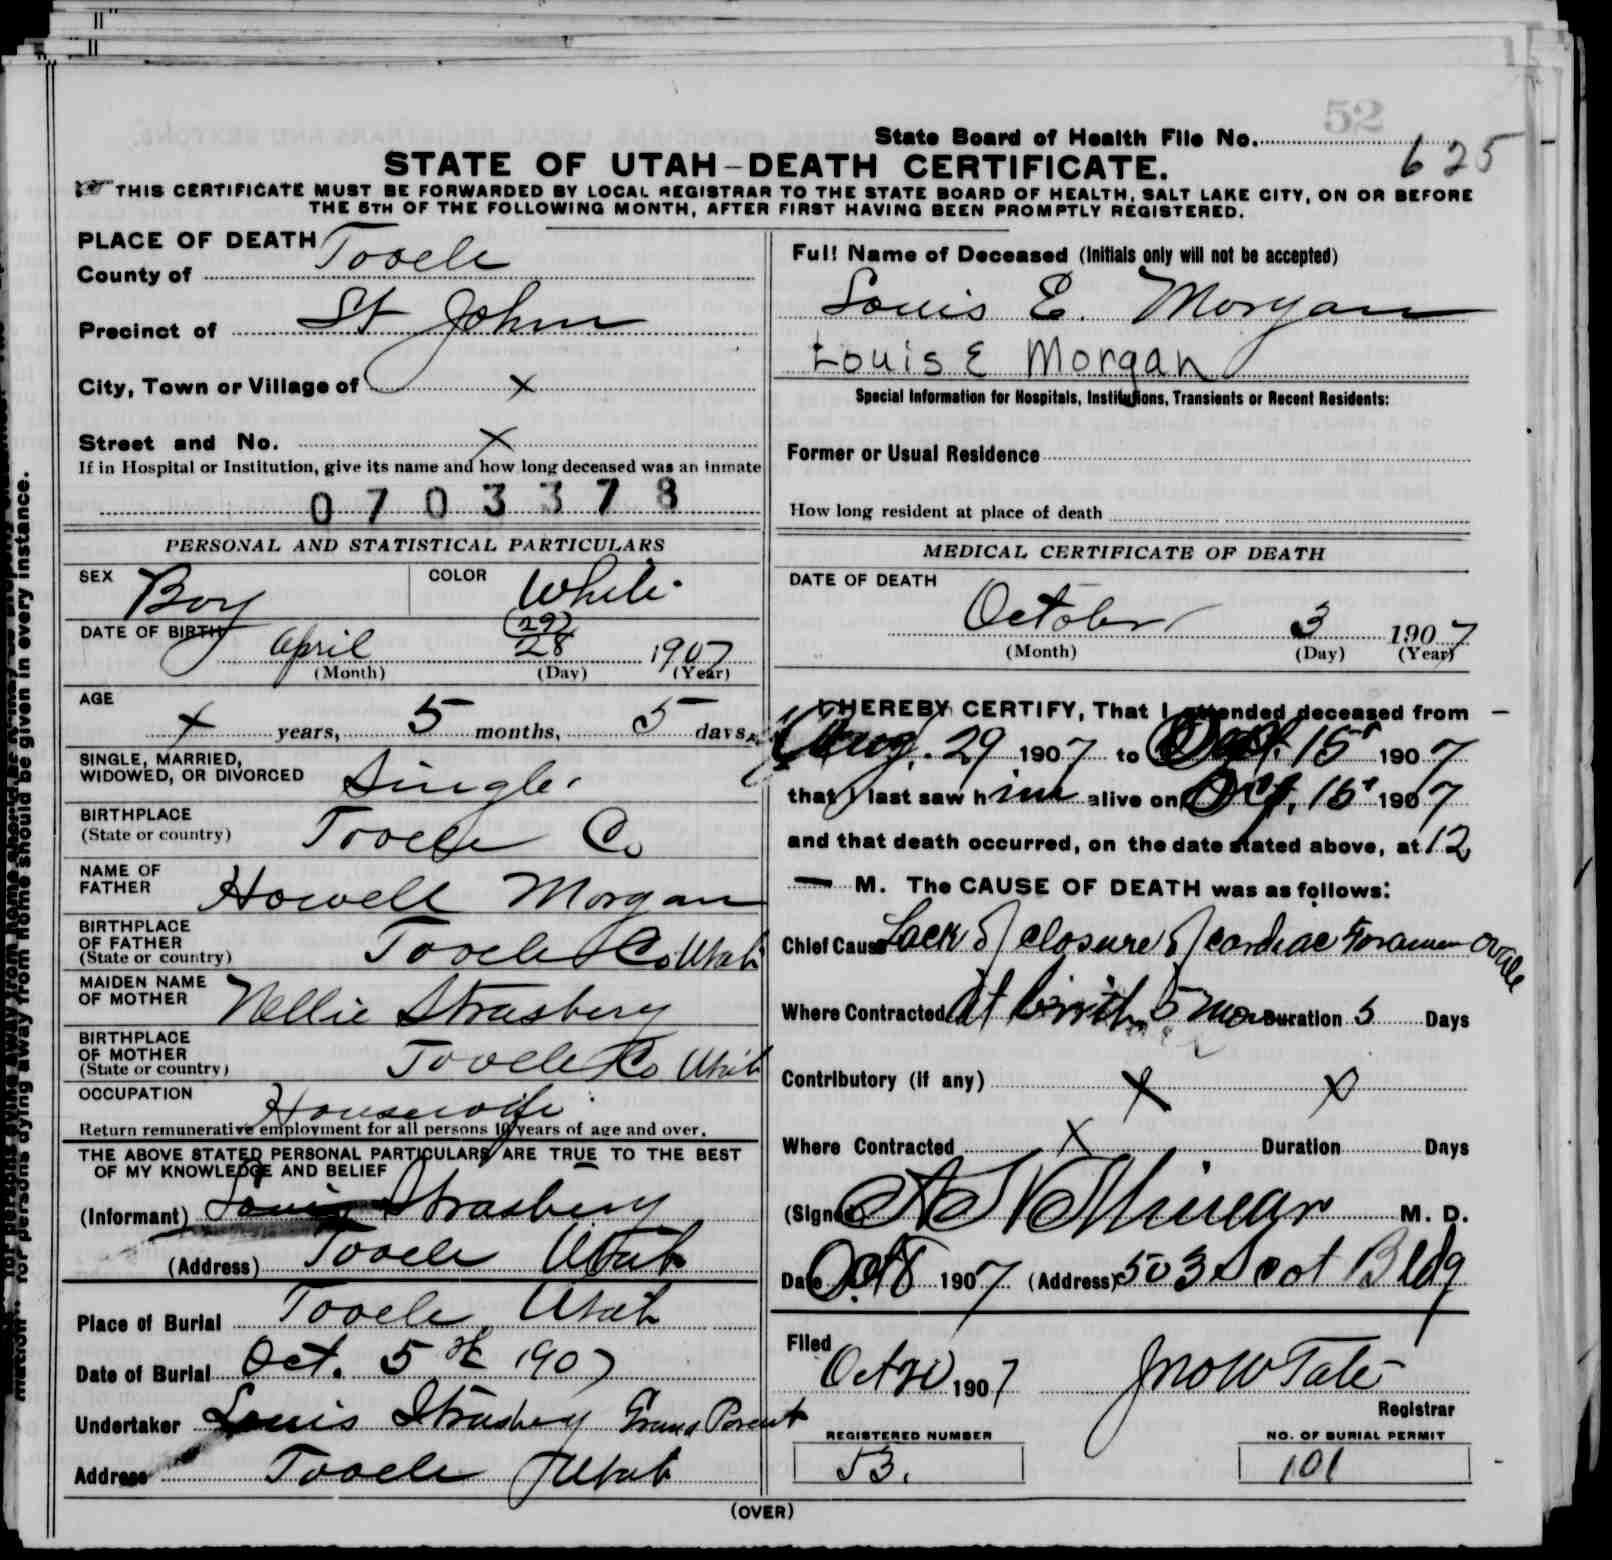 52
State Board of Health File No. 625
STATE OF UTAH-DEATH CERTIFICATE.
THIS CERTIFICATE MUST BE FORWARDED BY LOCAL REGISTRAR TO THE STATE BOARD OF HEALTH, SALT LAKE CITY, ON OR BEFORE
THE 5TH OF THE FOLLOWING MONTH, AFTER FIRST HAVING BEEN PROMPTLY REGISTERED.
PLACE OF DEATH
County of Tooele
Precinct of St John
City, Town or Village of x
Street and No. x
If in Hospital or Institution, give its name and how long deceased was an inmate
0703378
PERSONAL AND STATISTICAL PARTICULARS
SEX Boy COLOR White
DATE OF BIRTH April (29) 28 1907
(Month) (Day) (Year)
AGE
x years, 5 months, 5 days
SINGLE, MARRIED,
WIDOWED, OR DIVORCED Single
BIRTHPLACE
(State or country) Tooele Co
NAME OF
FATHER Howell Morgan
BIRTHPLACE
OF FATHER
(State or country) Tooele Co Utah
MAIDEN NAME
OF MOTHER Nellie Strasbery
BIRTHPLACE
OF MOTHER
(State or country) Tooele Co Utah
OCCUPATION Housewife
Return remunerative employment for all persons 10 years of age and over.
THE ABOVE STATED PERSONAL PARTICULARS ARE TRUE TO THE BEST
OF MY KNOWLEDGE AND BELIEF
(Informant) Louis Strasbery
(Address) Tooele Utah
Place of Burial Tooele, Utah
Date of Burial Oct. 5th 1907
Undertaker Louis Strasbery Grand Parent
Address Tooele Utah
Full Name of Deceased (Initials only will not be accepted)
Louis E. Morgan
Louis E Morgan
Special Information for Hospitals, Institutions, Transients or Recent Residents:
Former or Usual Residence
How long resident at place of death
MEDICAL CERTIFICATE OF DEATH
DATE OF DEATH
October 3 1907
(Month) (Day) (Year)
I HEREBY CERTIFY, That I attended deceased from
Aug. 29 1907 to 15 1907
that I last saw him alive on 15 1907
and that death occurred, on the date stated above, at 12
— M. The CAUSE OF DEATH was as follows:
Chief Cause Lack of closure of cardiac Foramen ovale
Where Contracted At birth 5 mo Duration 5 Days
Contributory (if any) x x
Where Contracted x Duration Days
(Signed) M. D.
Date Oct 8 1907 (Address) 503 Scot Bldg
Filed
Oct 20 1907 Jno W Tate
Registrar
REGISTERED NUMBER
53.
NO. OF BURIAL PERMIT
101
(OVER)
for persons dying away from home should be given in every instance.